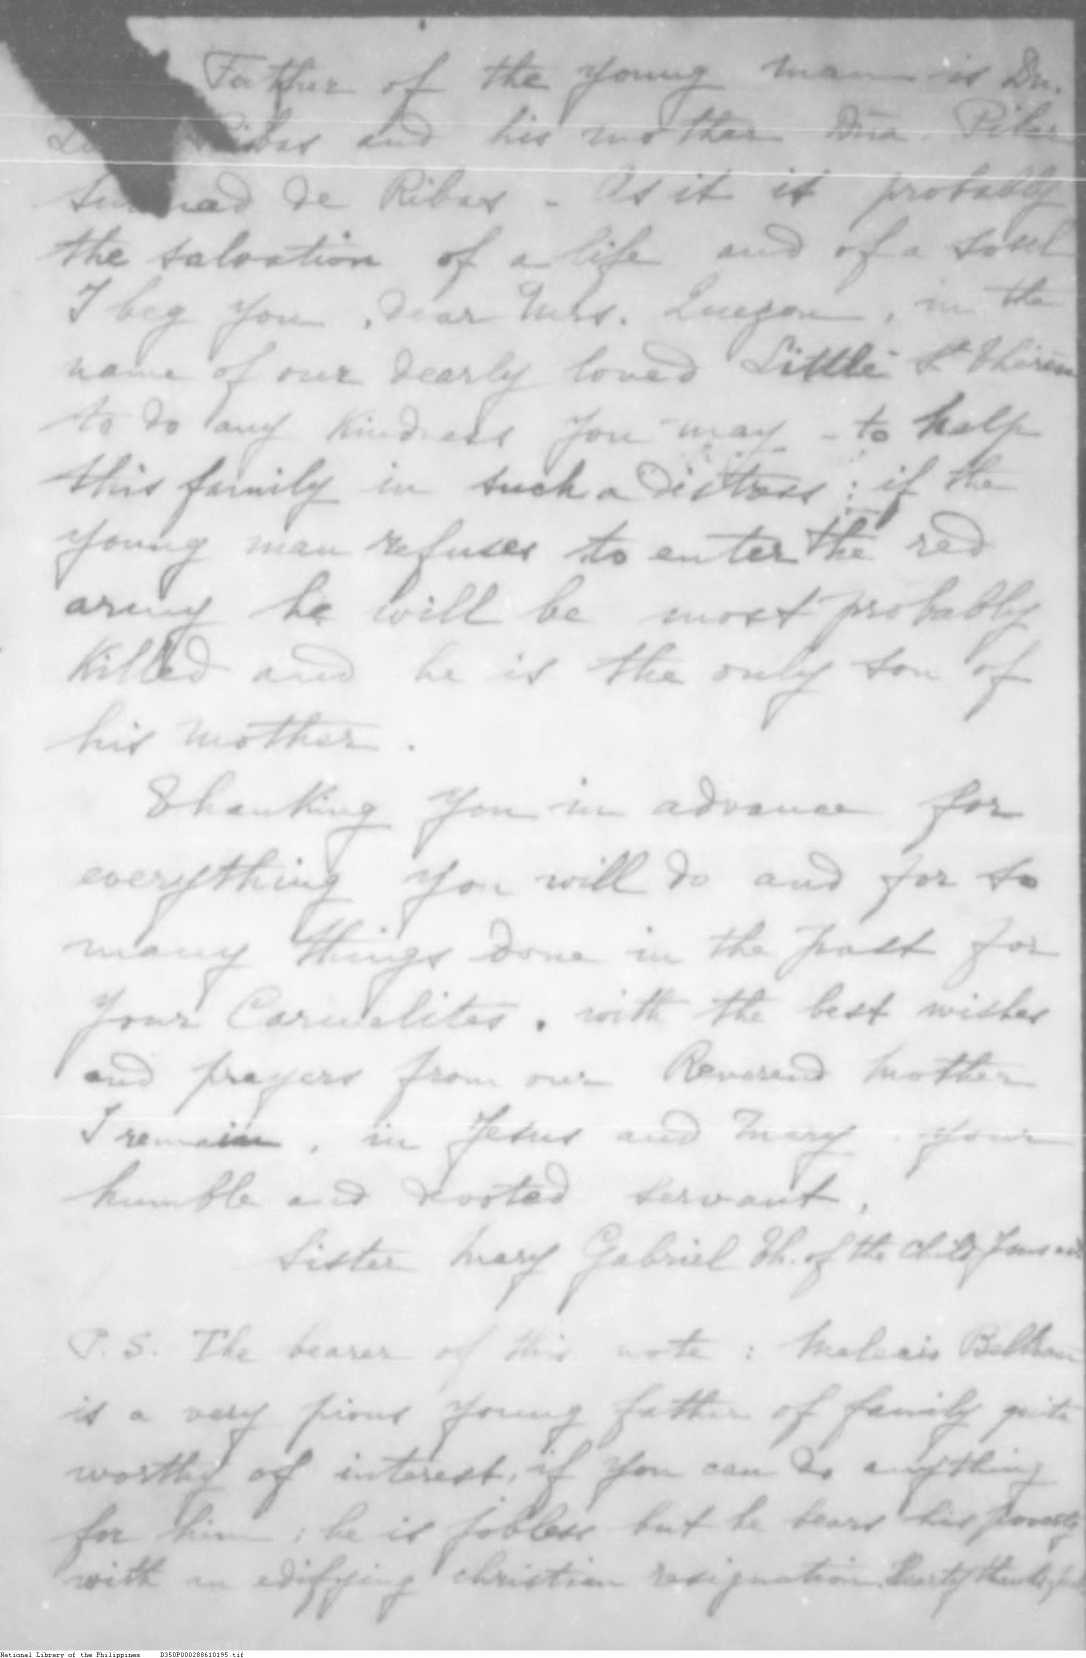 Father of the young man is Dn.
Ribas and his mother Dña. Pilar
de Ribas - As it is probably
the salvation of a life and of a soul
I beg you, dear Mrs. Quezon, in the
name of our dearly loved Little St Thérèse
to do any kindness you may - to help
this family in such a distress : if the
young man refuses to enter the red
army he will be most probably
killed and he is the only son of
his mother.
Thanking you in advance for
everything you will do and for so
many things done in the past for
your Carmelites, with the best wishes
and prayers from our Reverend Mother
I remain, in Jesus and Mary, your
humble and devoted servant,
Sister Mary Gabriel Th. of the Child Jesus and
P.S. The bearer of this note : Beltran
is a very pious young father of family quite
worthy of interest, if you can do anything
for him ; he is jobless but he bears his poverty
with an edifying christian resignation. Hearty thanks
National Library of the Philippines D350P000288610195.tif